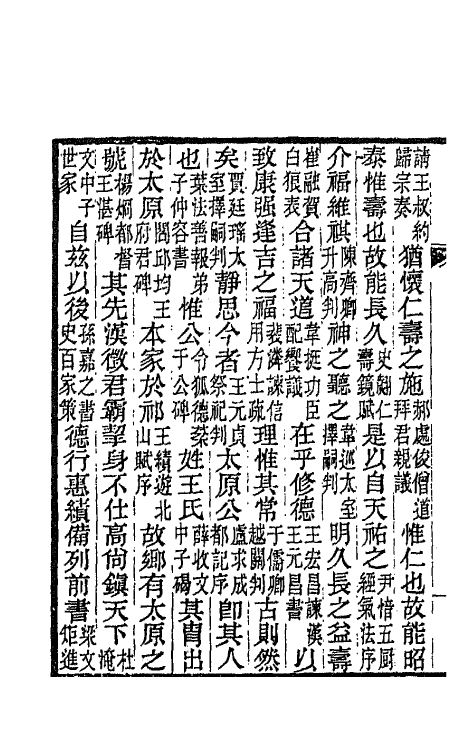 請王叔約歸宗奏猶懷仁壽之施郝處俊僧道拜君親議惟仁也故能昭
泰惟壽也故能長久史翽仁壽鏡賦是以自天祐之尹愔五厨經氣法序
介福維祺陳齊卿升高判神之聽之韋巡太室擇嗣判明久長之益壽
崔融賀白狼表合諸天道韋挺功臣配饗議在乎修德王宏昌諫漢王元昌書以
致康强逢吉之福裴潾諫信用方士疏理惟其常于儒卿越關判古則然
矣賈廷瑤太室擇嗣判靜思今者王元貞祭祀判太原公盧求成都記序卽其人
也葉法善報弟子仲容書惟公令狐德棻于公碑姓王氏薛收文中子碣其胄出
於太原閻邱均王府君碑本家於祁王績遊北山賦序故鄉有太原之
號楊烱都督王湛碑其先漢徵君霸挈身不仕高尚鎭天下杜淹
文中子世家自茲以後孫嘉之書史百家策德行惠績備列前書梁文矩進